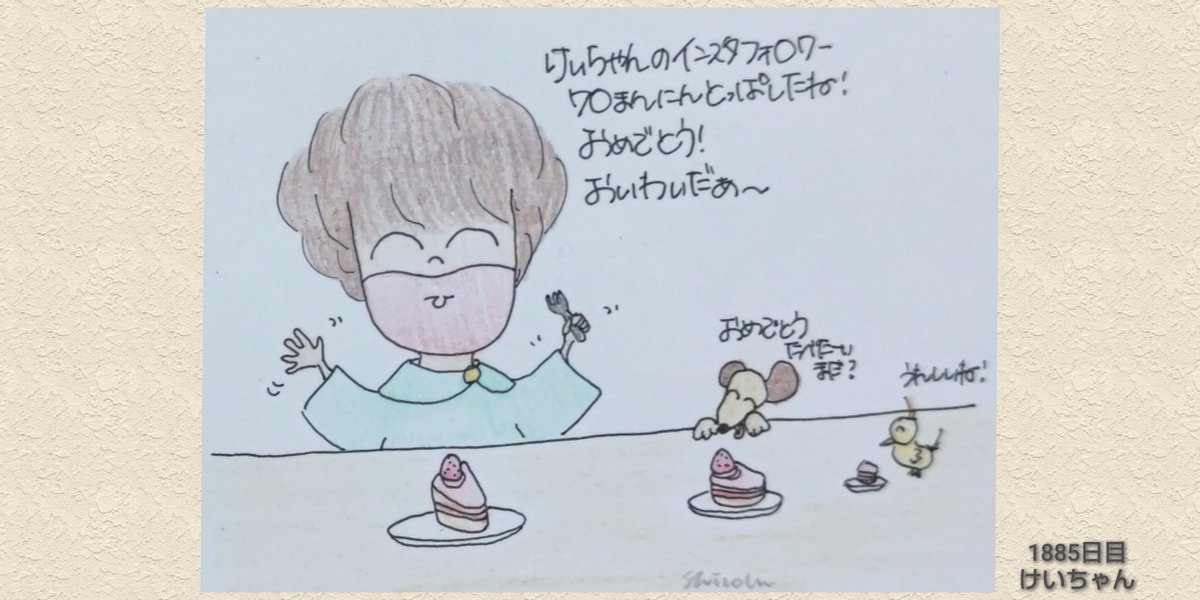 けいちゃんのインスタフォロワー
70まんにんとっぱしたね!
おめでとう!
おいわいだぁ〜
おめでとう
たべたーい
まだ?
うれしいね!
1885日目
けいちゃん